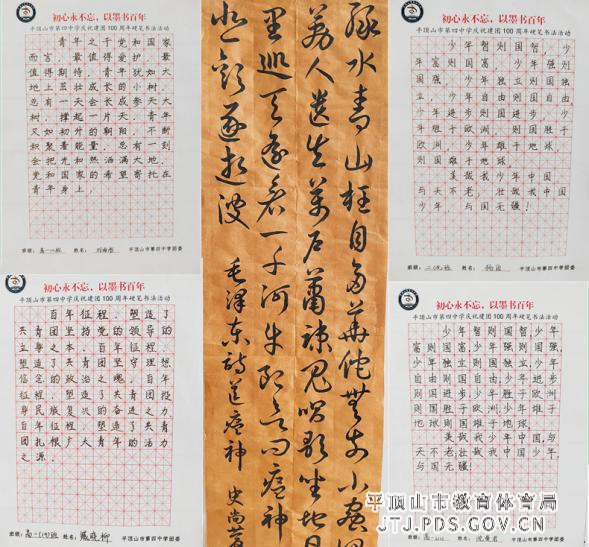 初心永不忘，以墨书百年
平顶山市第四中学庆祝建团100周年硬笔书法活动
青年之于党和国家
而言，最值得爱护、最
值得期待。青年犹如大
地上茁壮成长的小树，
总有一天会长成参天大
树，撑起一片天。青年
又如初升的朝阳，不断
积聚着能量，总有一刻
会把光和热洒满大地。
党和国家的希望寄托在
青年身上。
班级：高一 班 姓名：
平顶山市第四中学团委
初心永不忘，以墨书百年
平顶山市第四中学庆祝建团100周年硬笔书法活动
百年征程，塑造了
共青团坚持党的领导的
立身之本。百年征程，
塑造了共青团坚守理想
信念的政治之魂。百年
征程，塑造了共青团投
身民族复兴的奋进之力。
百年征程，塑造了共青
团扎根广大青年的活力
之源。
班级：高一(19)班 姓名：
平顶山市第四中学团委
绿水青山枉自多华佗无奈小虫何
万户萧疏鬼唱歌坐地日
里巡天遥看一千河牛郎欲问瘟神
悲欢逐逝波
毛泽东诗送瘟神
初心永不忘，以墨书百年
平顶山市第四中学庆祝建团100周年硬笔书法活动
少年智则国智，少
年富则国富，少年强则
国强，少年独立则国独
立，少年自由则国自由
少年进步则国进步，少
年胜于欧洲，则国胜于
欧洲，少年雄于地球，
则国雄于地球。
美哉我少年中国，
与天不老，壮哉我中国
少年，与国无疆！
班级： 姓名：
平顶山市第四中学团委
初心永不忘，以墨书百年
平顶山市第四中学庆祝建团100周年硬笔书法活动
少年智则国智，少年
富则国富，少年强则国强，
少年独立则国独立，少年
自由则国自由，少年进步
则国进步，少年胜于欧洲
则国胜于欧洲，少年雄于
地球则国雄于地球。
美哉我少年中国，与
天不老，壮哉我中国少年，
与国无疆！
班级： 姓名：
平顶山市第四中学团委
平顶山市教育体育局
JTJ.PDS.GOV.CN